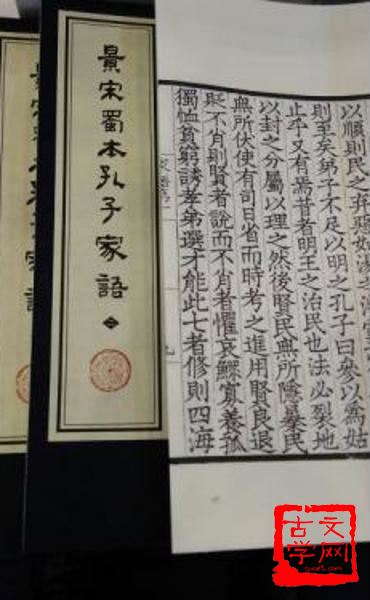 以順則民之弃惡如湯之
則至矣弟子不足以明之孔子曰參以爲姑
止乎又有焉昔者明王之治民也法必裂地
以封之分屬以理之然後賢民無所隱暴民
無所伏使有司日省而時考之進用賢良退
貶不肖則賢者說而不肖者懼哀鰥寡養孤
獨恤貧窮誘孝弟選才能此七者修則四海
九
景宋蜀本孔子家語
景宋蜀本孔子家語
古文
学网